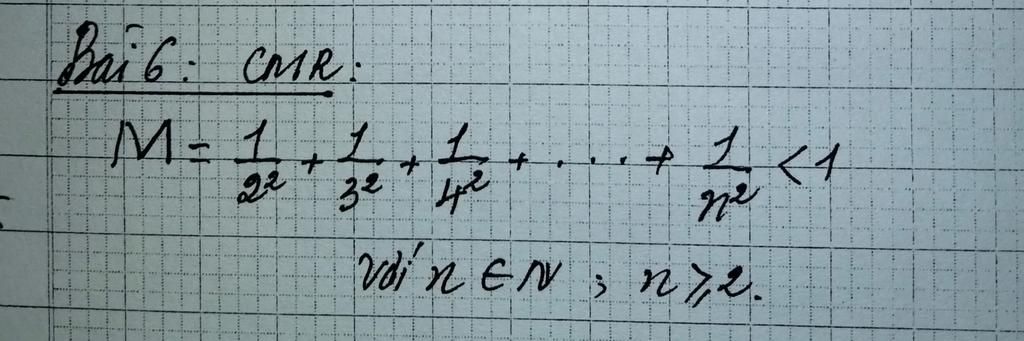 Bài 6: CMR:
M = 1/2² + 1/3² + 1/4² + .... + 1/n² < 1
với n ∈ N ; n ⩾ 2.